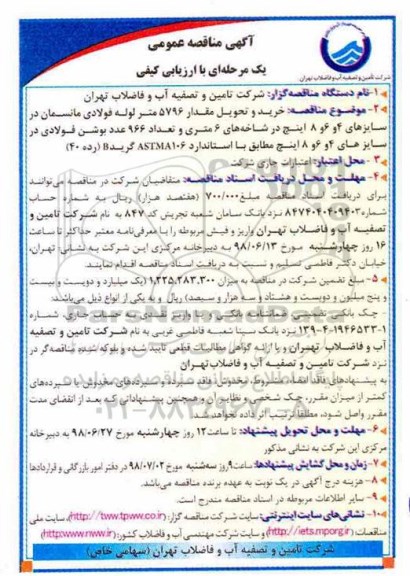 آگهی مناقصه عمومی
یک مرحله‌ای با ارزیابی کیفی
شرکت تأمین و تصفیه آب و فاضلاب تهران
۱- نام دستگاه مناقصه‌گزار: شرکت تامین و تصفیه آب و فاضلاب تهران
۲- موضوع مناقصه: خرید و تحویل مقدار ۵۷۹۶ متر لوله فولادی مانسمان در
سایزهای ۴و ۶و ۸ اینچ در شاخه‌های ۶ متری و تعداد ۹۶۶ عدد بوشن فولادی در
سایز های ۴و ۶و ۸ اینچ مطابق با استاندارد ASTMA۱۰۶ گریدB (رده ۴۰)
۳- محل اعتبار: اعتبارات جاری شرکت
۴- مهلت و محل دریافت اسناد مناقصه: متقاضیان شرکت در مناقصه می‌توانند
برای دریافت اسناد مناقصه مبلغ ۷۰۰/۰۰۰ (هفتصد هزار) ریال به شماره حساب
شماره ۸۴۷۴۰۴۰۴۰۹۴۰۳ نزد بانک سامان شعبه تجریش کد ۸۴۷ به نام شرکت تامین و
تصفیه آب و فاضلاب تهران واریز و فیش مربوطه را با معرفی‌نامه معتبر حداکثر تا ساعت
۱۶ روز چهارشنبه مورخ ۹۸/۰۶/۱۳ به دبیرخانه مرکزی این شرکت به نشانی: تهران،
خیابان دکتر فاطمی تسلیم و نسبت به دریافت اسناد مناقصه اقدام نمایند.
۵- مبلغ تضمین شرکت در مناقصه به میزان ۱,۲۳۵,۲۸۳,۳۰۰ (یک میلیارد و دویست و سی
و پنج میلیون و دویست و هشتاد و سه هزار و سیصد) ریال و به یکی از انواع ذیل می‌باشد:
چک بانکی تضمین، ضمانتنامه بانکی و یا واریز نقدی به حساب جاری شماره
۱۳۹-۴-۱۹۴۶۵۳۳-۱ نزد بانک سینا شعبه فاطمی غربی به نام شرکت تامین و تصفیه
آب و فاضلاب تهران و یا ارائه گواهی مطالبات قطعی تایید شده و بلوکه شده مناقصه‌گر در
نزد شرکت تامین و تصفیه آب و فاضلاب تهران
به پیشنهادهای فاقد امضاء، مشروط، مخدوش و فاقد سپرده و سپرده‌های مخدوش یا سپرده‌های
کمتر از میزان مقرر، چک شخصی و نظایر آن و همچنین پیشنهاداتی که بعد از انقضای مدت
مقرر واصل شود، مطلقاً ترتیب اثر داده نخواهد شد.
۶- مهلت و محل تحویل پیشنهاد: تا ساعت ۱۲ روز چهارشنبه مورخ ۹۸/۰۶/۲۷ به دبیرخانه
مرکزی این شرکت به نشانی مذکور
۷- زمان و محل گشایش پیشنهادها: ساعت ۹ روز سه‌شنبه مورخ ۹۸/۰۷/۰۲ در دفتر امور بازرگانی و قراردادها
۸- هزینه درج آگهی در یک نوبت به عهده برنده مناقصه می‌باشد.
۹- سایر اطلاعات مربوطه در اسناد مناقصه مندرج است.
۱۰- نشانی‌های سایت اینترنتی: سایت شرکت مناقصه گزار: (http://tww.tpww.co.ir)، سایت ملی
مناقصات (http://iets.mporg.ir) و سایت شرکت مهندسی آب و فاضلاب کشور: (http:www.nww.ir)
شرکت تامین و تصفیه آب و فاضلاب تهران (سهامی خاص)